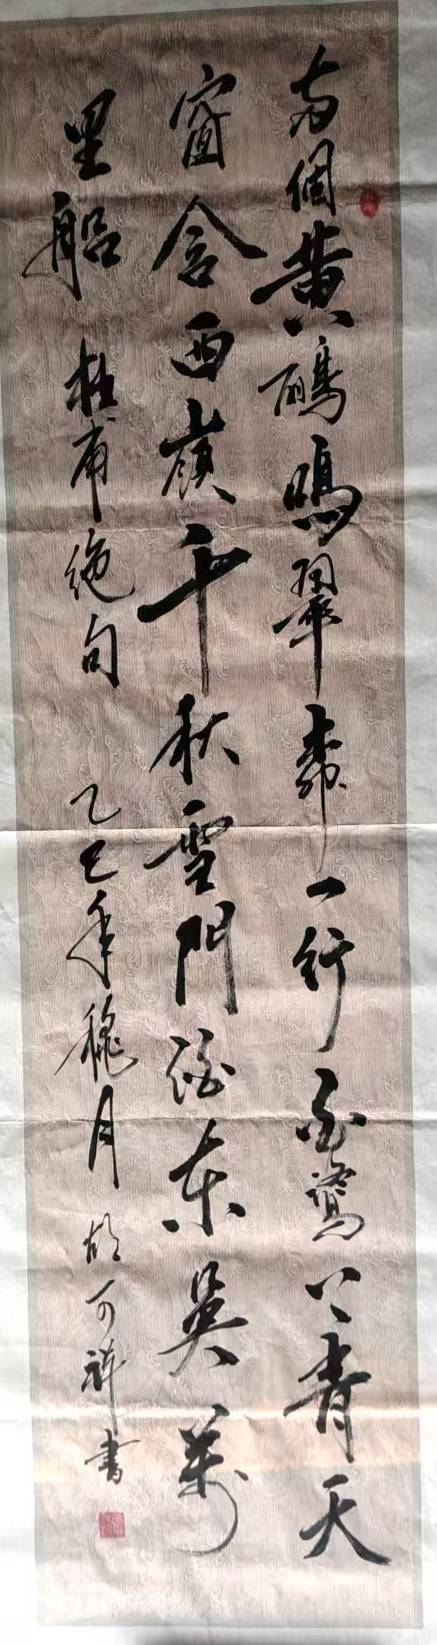 两個黄鸝鳴翠柳一行白鷺上青天
窗含西嶺千秋雪門泊東吴萬
里船 杜甫絶句 乙巳年穐月 胡可祥書